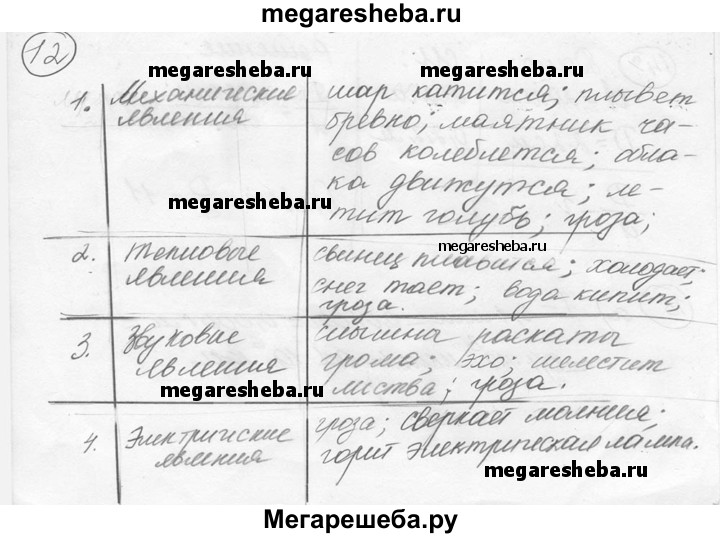 megaresheba.ru
12
megaresheba.ru megaresheba.ru
1. Механические шар катится; плывет
явления бревно; маятник ча-
сов колеблется; обла-
megaresheba.ru ка движутся; ле-
тит голубь; гроза;
megaresheba.ru
2. тепловые свинец плавится; холодает;
явления снег тает; вода кипит;
гроза.
3. Звуковые слышны раскаты
явления грома; эхо; шелестит
megaresheba.ru листва; гроза.
4. Электрические гроза; сверкает молния;
явления горит электрическая лампа.
megaresheba.ru
Мегарешеба.ру